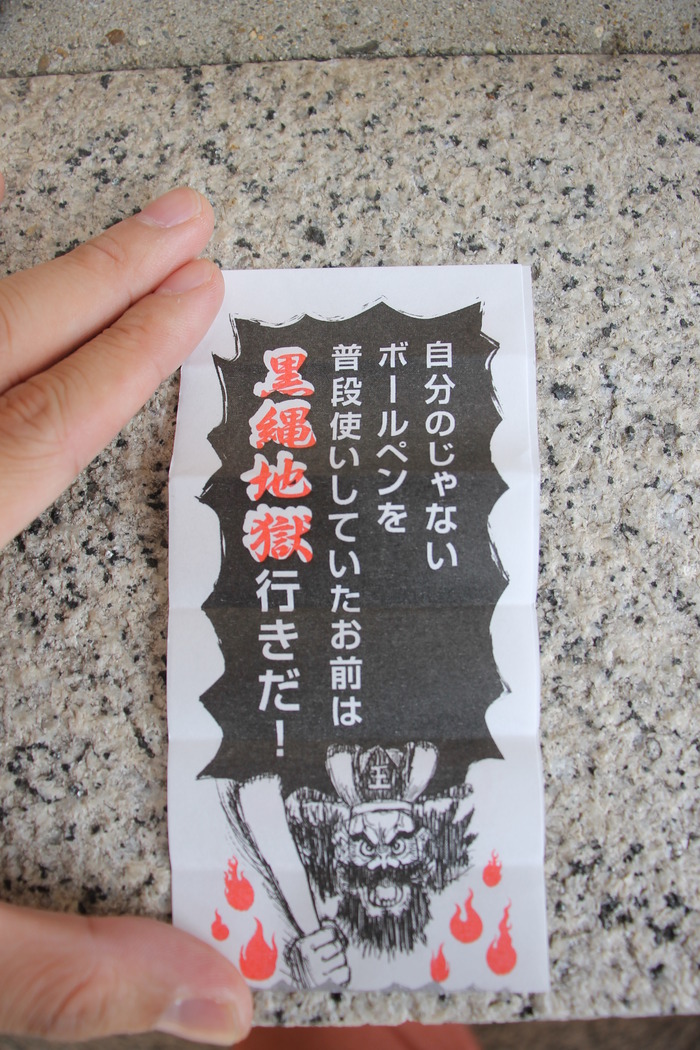 自分のじゃない
ボールペンを
普段使いしていたお前は
黒縄地獄行きだ！
王